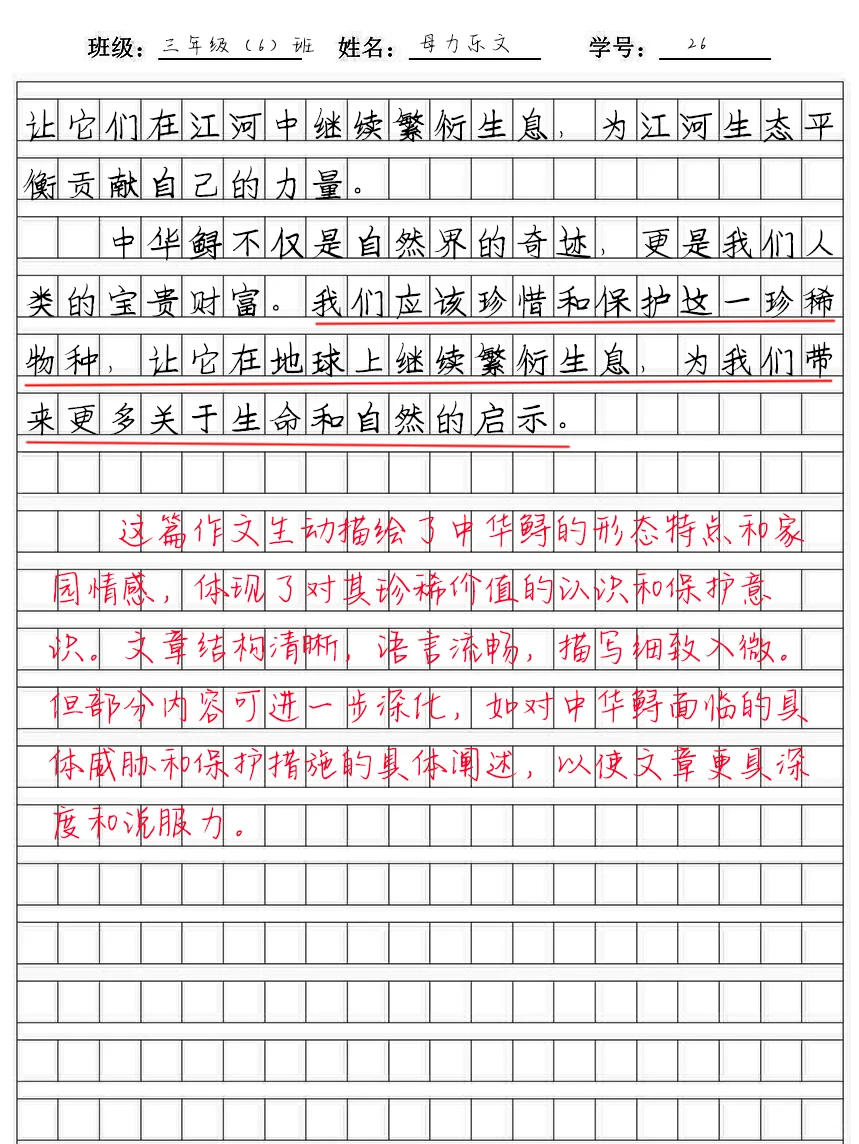 班级：三年级（6）班 姓名：母力乐文 学号：26
让它们在江河中继续繁衍生息，为江河生态平
衡贡献自己的力量。
中华鲟不仅是自然界的奇迹，更是我们人
类的宝贵财富。我们应该珍惜和保护这一珍稀
物种，让它在地球上继续繁衍生息，为我们带
来更多关于生命和自然的启示。
这篇作文生动描绘了中华鲟的形态特点和家
园情感，体现了对其珍稀价值的认识和保护意
识。文章结构清晰，语言流畅，描写细致入微。
但部分内容可进一步深化，如对中华鲟面临的具
体威胁和保护措施的具体阐述，以使文章更具深
度和说服力。